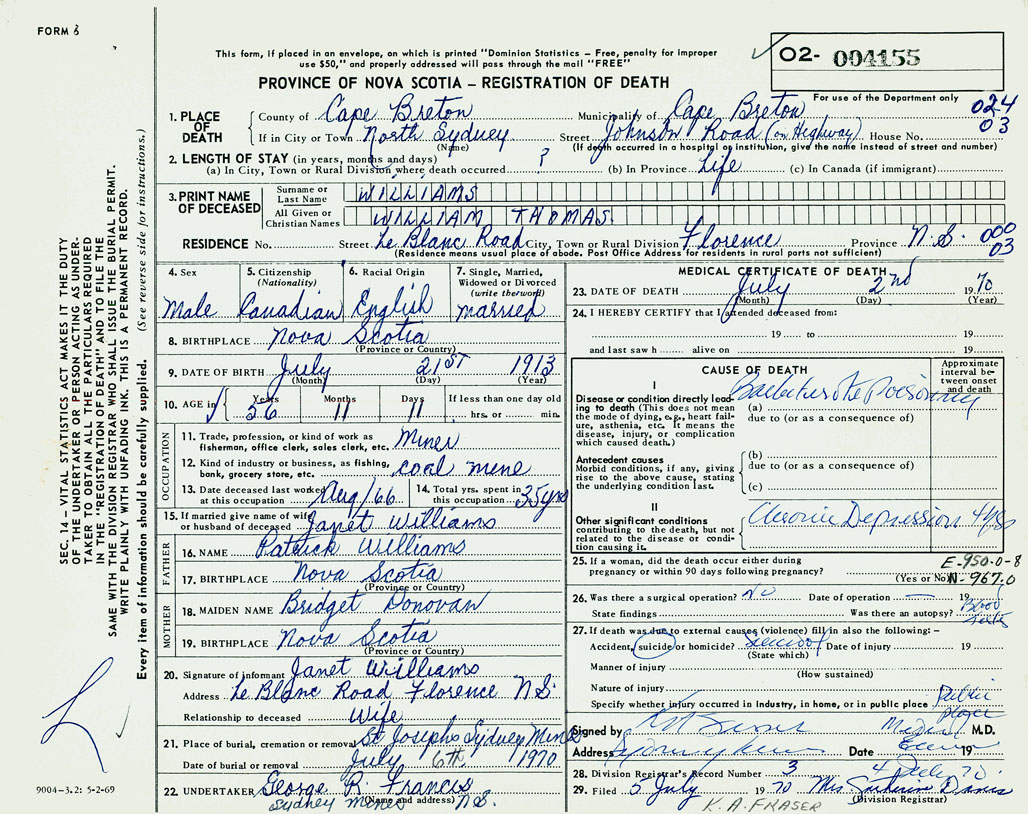 FORM 6
This form, if placed in an envelope, on which is printed "Dominion Statistics – Free, penalty for improper
use $50," and properly addressed will pass through the mail "FREE"
O2- 004155
PROVINCE OF NOVA SCOTIA – REGISTRATION OF DEATH
For use of the Department only
024
03
1. PLACE OF DEATH
County of Cape Breton Municipality of Cape Breton
If in City or Town North Sydney Street Johnson Road (on Highway) House No.
(Name) (If death occurred in a hospital or institution, give the name instead of street and number)
2. LENGTH OF STAY (in years, months and days)
(a) In City, Town or Rural Division where death occurred ? (b) In Province Life (c) In Canada (if immigrant)
3. PRINT NAME OF DECEASED
Surname or Last Name WILLIAMS
All Given or Christian Names WILLIAM THOMAS
RESIDENCE No. Street Le Blanc Road City, Town or Rural Division Florence Province N.S. 000
03
(Residence means usual place of abode. Post Office Address for residents in rural parts not sufficient)
4. Sex Male
5. Citizenship (Nationality) Canadian
6. Racial Origin English
7. Single, Married, Widowed or Divorced (write the word) married
8. BIRTHPLACE Nova Scotia
(Province or Country)
9. DATE OF BIRTH July 21ST 1913
(Month) (Day) (Year)
10. AGE in Years Months Days If less than one day old
56 11 11 hrs. or min.
OCCUPATION
11. Trade, profession, or kind of work as Miner
fisherman, office clerk, sales clerk, etc.
12. Kind of industry or business, as fishing, coal mine
bank, grocery store, etc.
13. Date deceased last worked at this occupation Aug/66
14. Total yrs. spent in this occupation 35 yrs
15. If married give name of wife or husband of deceased Janet Williams
FATHER
16. NAME Patrick Williams
17. BIRTHPLACE Nova Scotia
(Province or Country)
MOTHER
18. MAIDEN NAME Bridget Donovan
19. BIRTHPLACE Nova Scotia
(Province or Country)
20. Signature of informant Janet Williams
Address Le Blanc Road Florence N.S.
Relationship to deceased Wife
21. Place of burial, cremation or removal St Josephs Sydney Mines
Date of burial or removal July 6th 1970
22. UNDERTAKER George R. Francis
(Name and address) Sydney Mines N.S.
MEDICAL CERTIFICATE OF DEATH
23. DATE OF DEATH July 2nd 1970
(Month) (Day) (Year)
24. I HEREBY CERTIFY that I attended deceased from:
19 to 19
and last saw h alive on 19
CAUSE OF DEATH
Approximate interval between onset and death
I
Disease or condition directly leading to death (This does not mean the mode of dying, e.g., heart failure, asthenia, etc. It means the disease, injury, or complication which caused death.)
(a) Barbiturate Poisoning
due to (or as a consequence of)
Antecedent causes
Morbid conditions, if any, giving rise to the above cause, stating the underlying condition last.
(b)
due to (or as a consequence of)
(c)
II
Other significant conditions
contributing to the death, but not related to the disease or condition causing it.
Chronic Depression 4 yrs
25. If a woman, did the death occur either during
pregnancy or within 90 days following pregnancy? (Yes or No)
E-950.0-8
N-967.0
26. Was there a surgical operation? No Date of operation — 19
State findings Was there an autopsy? Blood
27. If death was due to external causes (violence) fill in also the following:–
Accident, suicide or homicide? Suicide Date of injury 19
(State which)
Manner of injury
(How sustained)
Nature of injury
Specify whether injury occurred in industry, in home, or in public place Public place
Signed by M.D.
Address Date 19
28. Division Registrar's Record Number 3 4 July 70
29. Filed 5 July 1970 Mrs. Davis
(Division Registrar)
K. A. FRASER
SEC. 14 – VITAL STATISTICS ACT MAKES IT THE DUTY
OF THE UNDERTAKER OR PERSON ACTING AS UNDER-
TAKER TO OBTAIN ALL THE PARTICULARS REQUIRED
IN THE "REGISTRATION OF DEATH" AND TO FILE THE
SAME WITH THE DIVISION REGISTRAR WHO SHALL ISSUE THE BURIAL PERMIT.
WRITE PLAINLY WITH UNFADING INK. THIS IS A PERMANENT RECORD.
Every item of information should be carefully supplied. (See reverse side for instructions.)
9004–3.2: 5-2-69